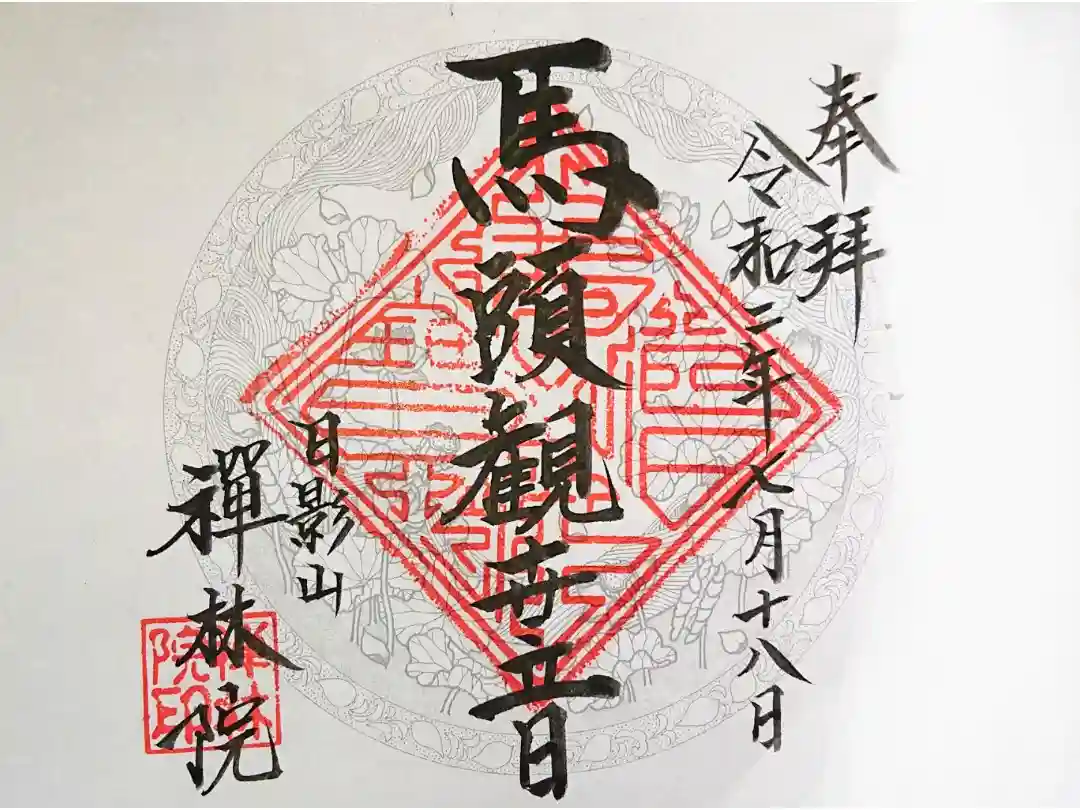 奉拝
令和二年七月十八日
馬頭観世音
日影山
禅林院
禅林院印